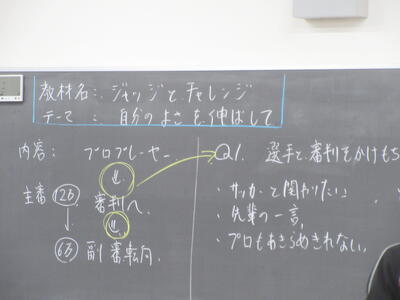 教材名：ジャッジとチャレンジ
テーマ：自分のよさを伸ばして
内容：プロプレーヤー
↓
主審 126 審判へ、
↓ ↓
63 副審転向、
Q1. 選手と審判をかけも
・サッカーと関わりたい
・先輩の一言、
・プロもあきらめきれない、